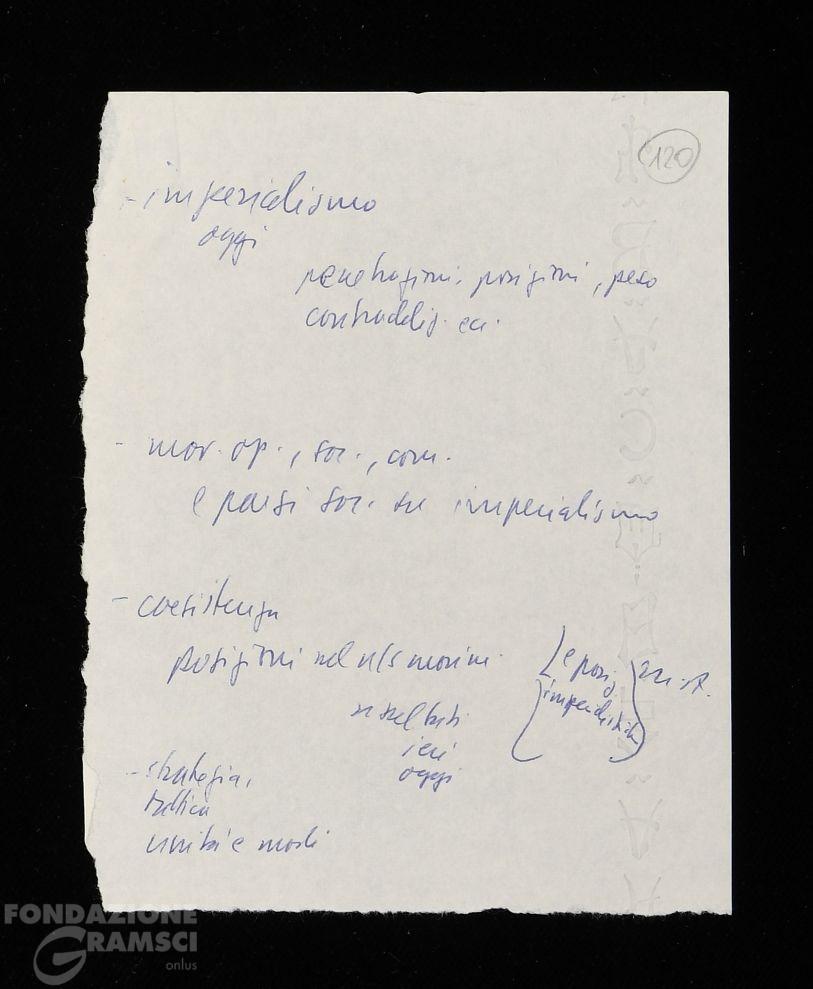 120
- imperialismo
oggi
penetrazioni, posizioni, peso
contraddiz. ecc.
- mov. op., soc., com.
e paesi soc. su imperialismo
- coesistenza
posizioni nel n/s movim.
[e posiz.
imperialistiche
risultati
ieri
oggi
- strategia,
tattica
unità e modi
FONDAZIONE
GRAMSCI
onlus